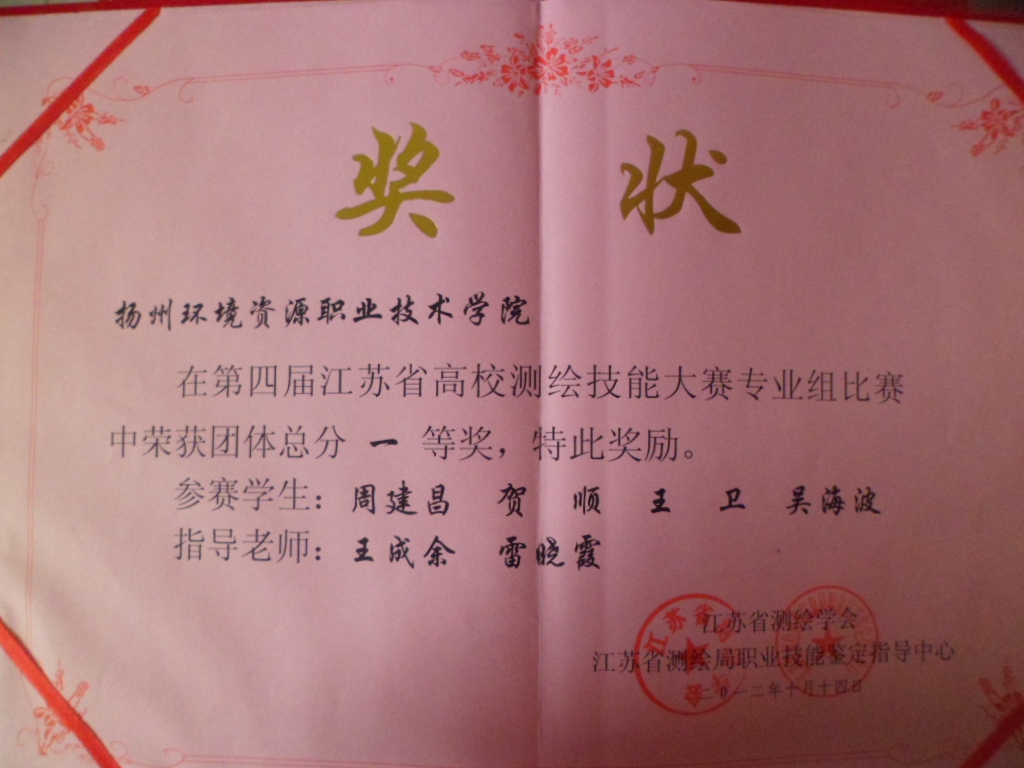 奖 状
扬州环境资源职业技术学院
在第四届江苏省高校测绘技能大赛专业组比赛
中荣获团体总分 一 等奖，特此奖励。
参赛学生：周建昌 贺 顺 王 卫 吴海波
指导老师：王成余 雷晓霞
江苏省测绘学会
江苏省测绘局职业技能鉴定指导中心
二〇一二年十月十四日